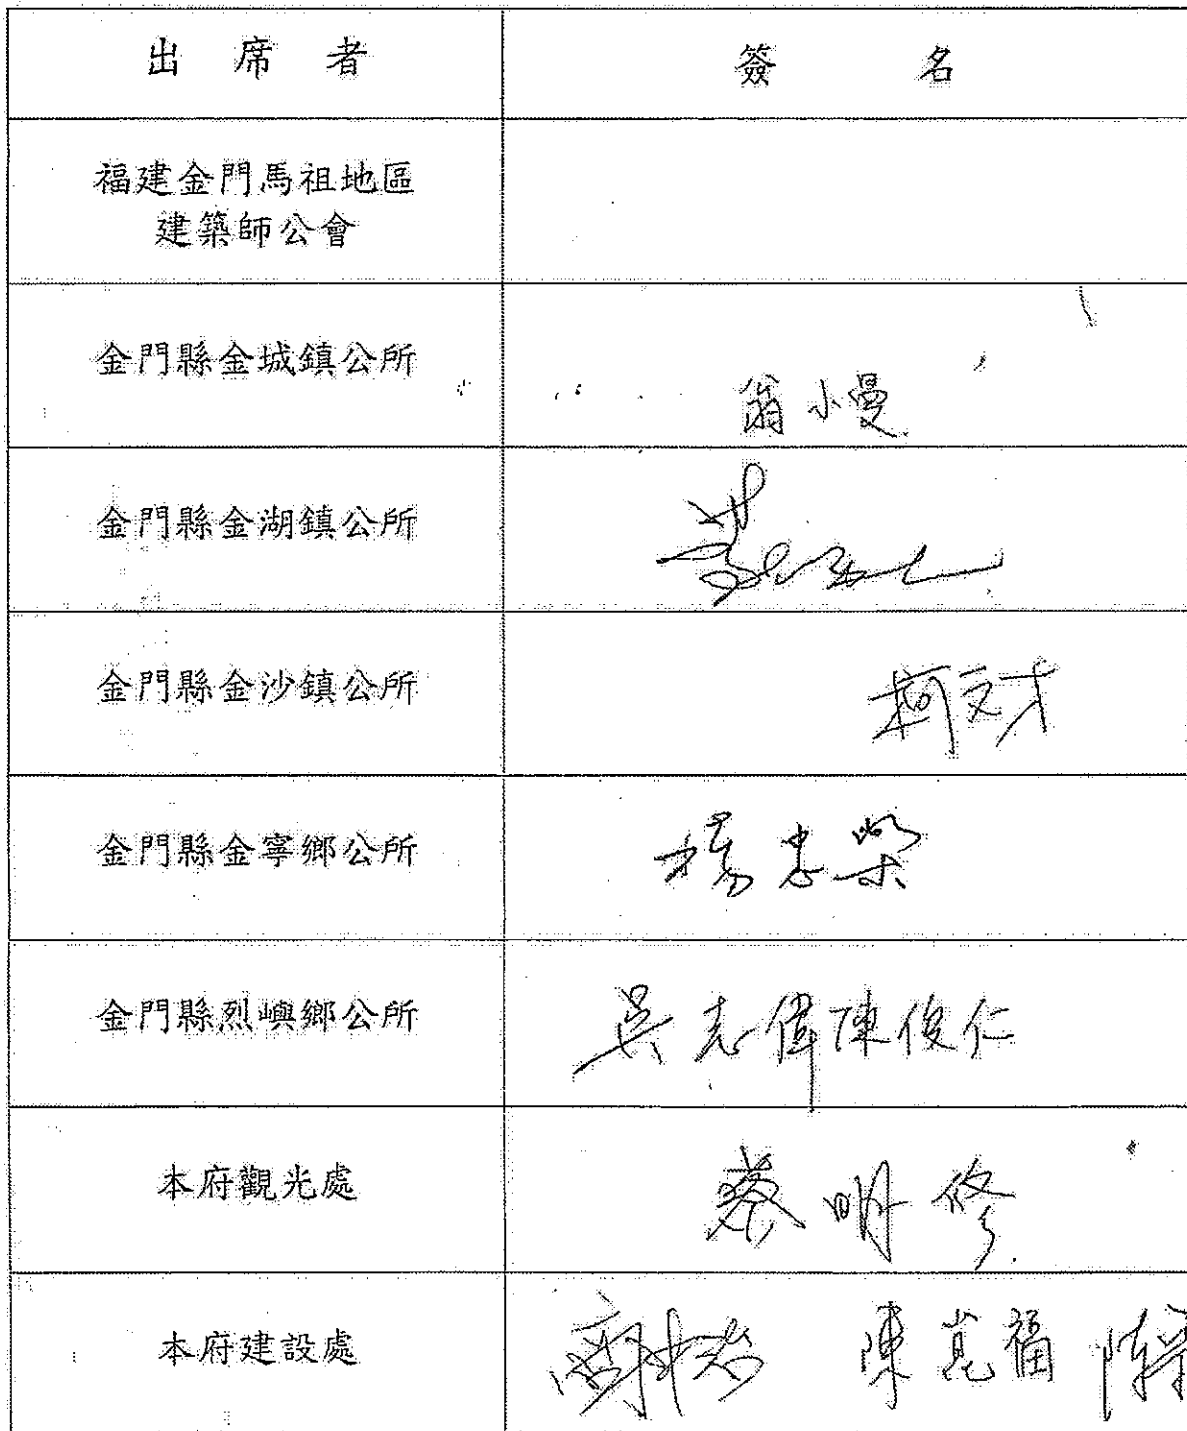 出席者 簽名
福建金門馬祖地區
建築師公會
金門縣金城鎮公所
翁小曼
金門縣金湖鎮公所
金門縣金沙鎮公所 柯文才
金門縣金寧鄉公所 楊忠榮
金門縣烈嶼鄉公所 吳志偉 陳俊仁
本府觀光處 蔡明修
本府建設處 陳崑福 陳